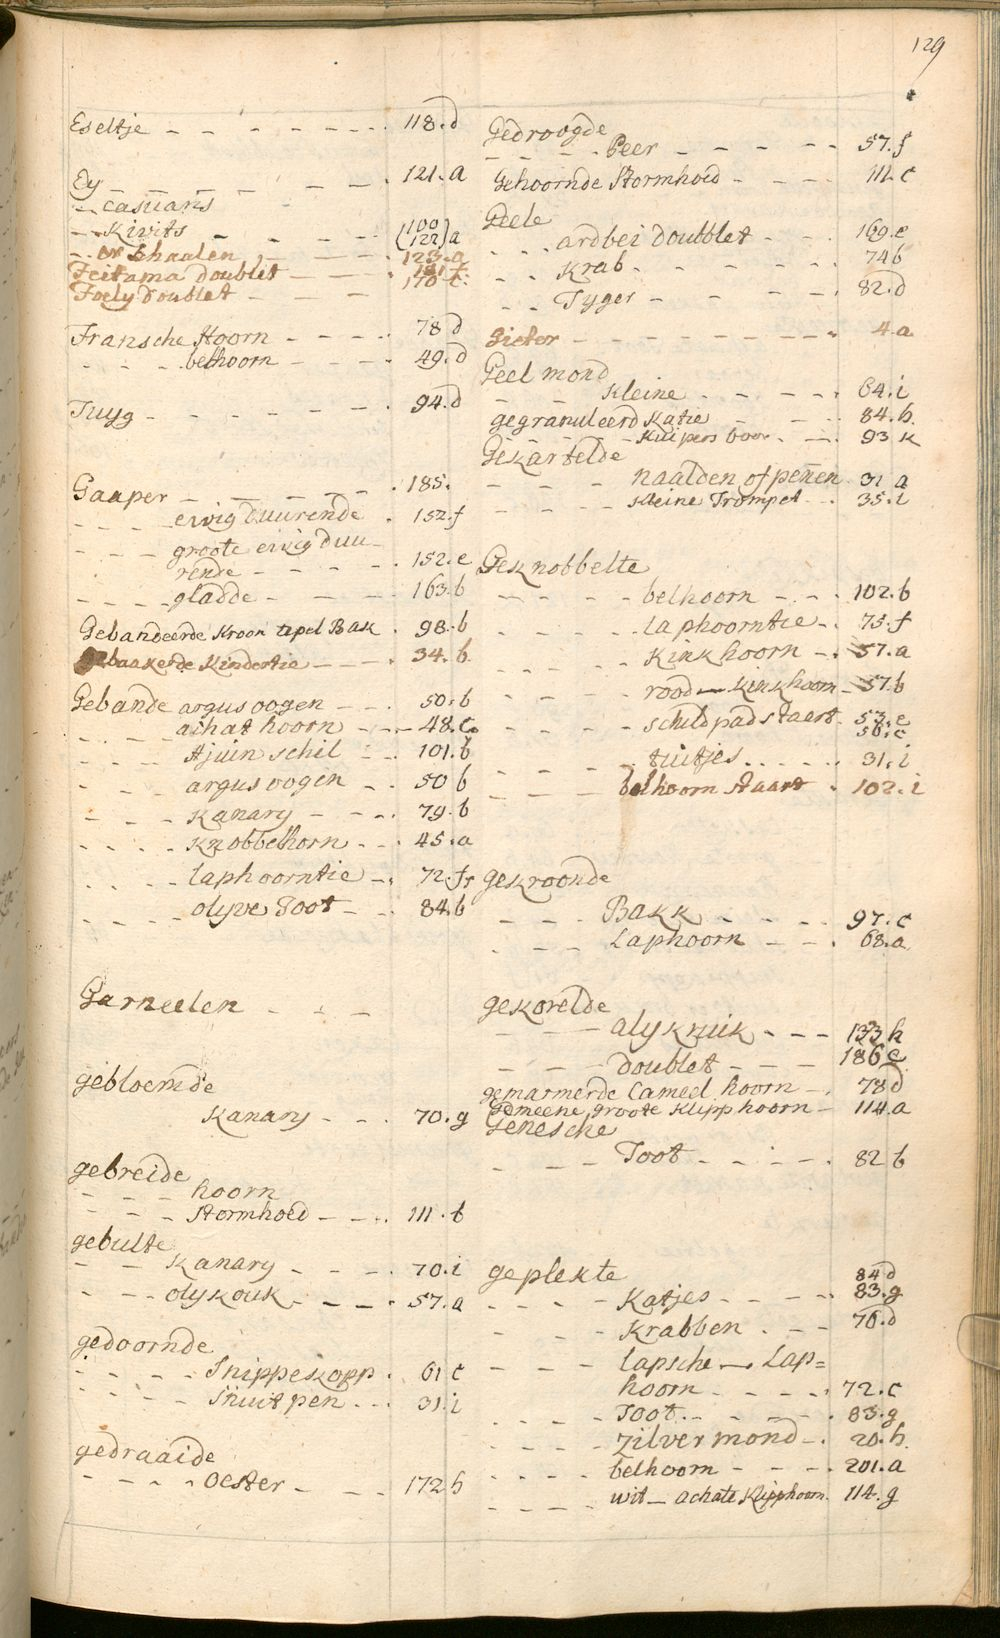 129
Eseltje - - - - - - - 118. d
Ey - - - - - - 121. a
- - casuaris
- - Kivits - - - - - (100/122) a
- - or Schaalen - - - 123. a
Feitama Doublet - - - 181 f.
Foely Doublet - - - 170 t.
Fransche Hoorn - - - - 78 d
- - - - belhoorn - - - - 49. d
Tuyg - - - - - - - 94. d
Gaaper - - - - - - 185.
- - - - eiwig duurende - 152. f
- - - - groote eiwig duu-
rende - - - - - 152. e
- - - - gladde - - - - 163. b
Gebandeerde Kroon tepel Bak . 98. b
gebaakerde Kindertie - - - - 34. b.
Gebande argus oogen - - - 50. b
- - - achat hoorn - - - 48. c.
- - - Ajuin schil - - - 101. b
- - - argus oogen - - 50 b
- - - Kanary - - - - 79. b
- - - - Knobbelhorn - - - 45. a
- - - - laphoorntie - - 72. f
- - - - olyve Toot - - - 84. b
Garneelen - - -
gebloemde
Kanary - - - 70. g
gebreide
- - - - hoorn
- - - - Stormhoed - - - . 111. b
gebulte
- - - Kanary - - - - 70. i
- - - olykouk - - - - 57. a
gedoornde
- - - - Snippekopp . 61 c
- - - - Snuit pen - - . 31. i
gedraaide
- - - - oester - - - 172 h
Gedroogde
- - - - Peer - - - - - 57. f
Gehoornde Stormhoed - - - - 111. c
Geele
- - . ardbei Doubblet - - - 169. e
- - Krab - - - - - - 74 b
- - Tyger - - - - - 82. d
Gieter - - - - - - - - - 4. a
Geel mond
- - - Kleine - - - - - 64. i
gegranuleerd Katie - - - 84. h.
- - - - - Kuipers boor - - - 93 k
Gekartelde
- - - - naalden of penen 31 a
- - - - Kleine Trompet - - . 35. i
Geknobbelte
- - - - belhoorn - - . - 102. b
- - - - laphoorntie - . 75. f
- - - - Kinkhoorn - - 57. a
- - - - rood - Kinkhoorn - 57. b
- - - - schildpadstaert - 53. e
56. c
- - - - tuitjes . . . . . 31. i
- - - - belhoorn staart . 102. i
gekroonde
- - - Bakk - - - - - 97. c
- - - Laphoorn - - - . 68. a
gekorelde
- - - alykruik - - - 133 h
- - - doublet - - - - 186 e
gemarmerde Cameel hoorn - . 78 d
Gemeene groote Klipp hoorn - 114. a
Genesche
- - - - Toot - - - - - 82 b
geplekte 84 d
- - - - Katjes - - - - - 83. g
- - - - Krabben - - - 76. d
- - - - lapsche - Lap=
hoorn - - - - - 72. c
- - - - Toot - - - - - 83. g
- - - - zilver mond - - . 20. h.
- - - - belhoorn - - - - . 201. a
- - - - wit - achate Klipphoorn . 114. g